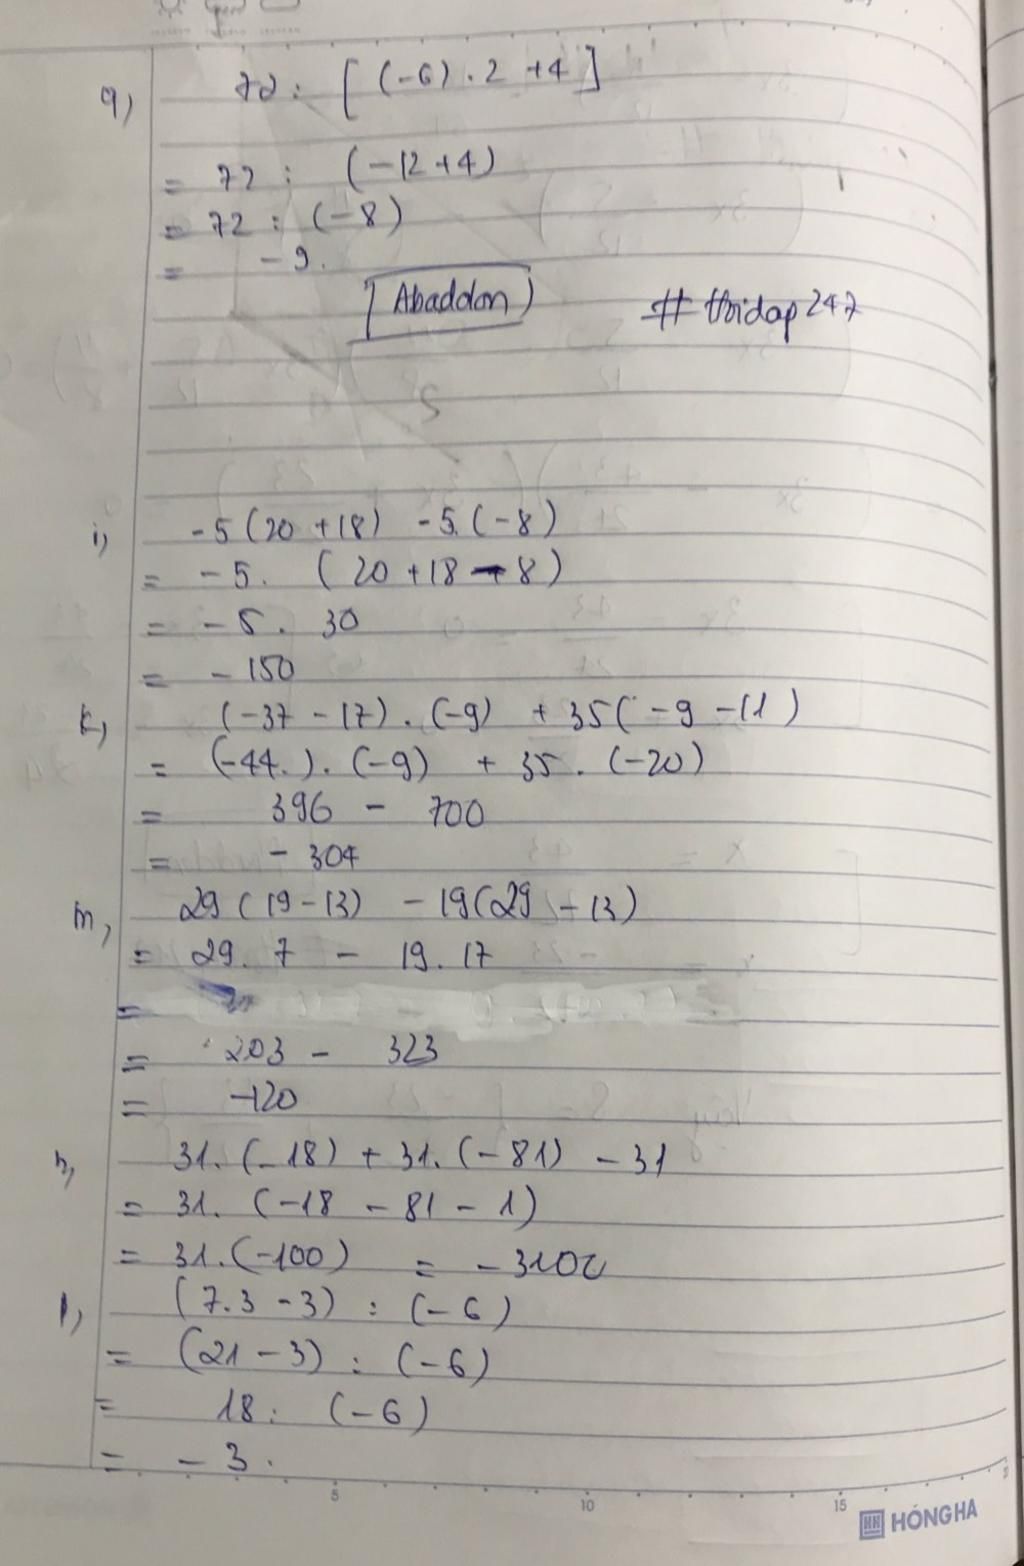 q) 72 : [ (-6) . 2 + 4 ]
= 72 : (-12 + 4)
= 72 : (-8)
= -9.
[Abaddon) # thidap247
i, -5 (20 + 18) - 5. (-8)
= -5. ( 20 + 18 - 8 )
= -5. 30
= -150
k, (-37 - 17) . (-9) + 35 ( -9 - 11 )
= (-44.) . (-9) + 35 . (-20)
= 396 - 700
= -304
m, 29 ( 19 - 13) - 19 (29 - 13)
= 29. 7 - 19. 17
=
= 203 - 323
= -120
h, 31. (-18) + 31. (-81) - 31
= 31. (-18 - 81 - 1)
= 31. (-100) = -3100
p, (7.3 - 3) : (-6)
= (21 - 3) : (-6)
= 18 : (-6)
= -3.
5 10 15
HH HỒNG HÀ